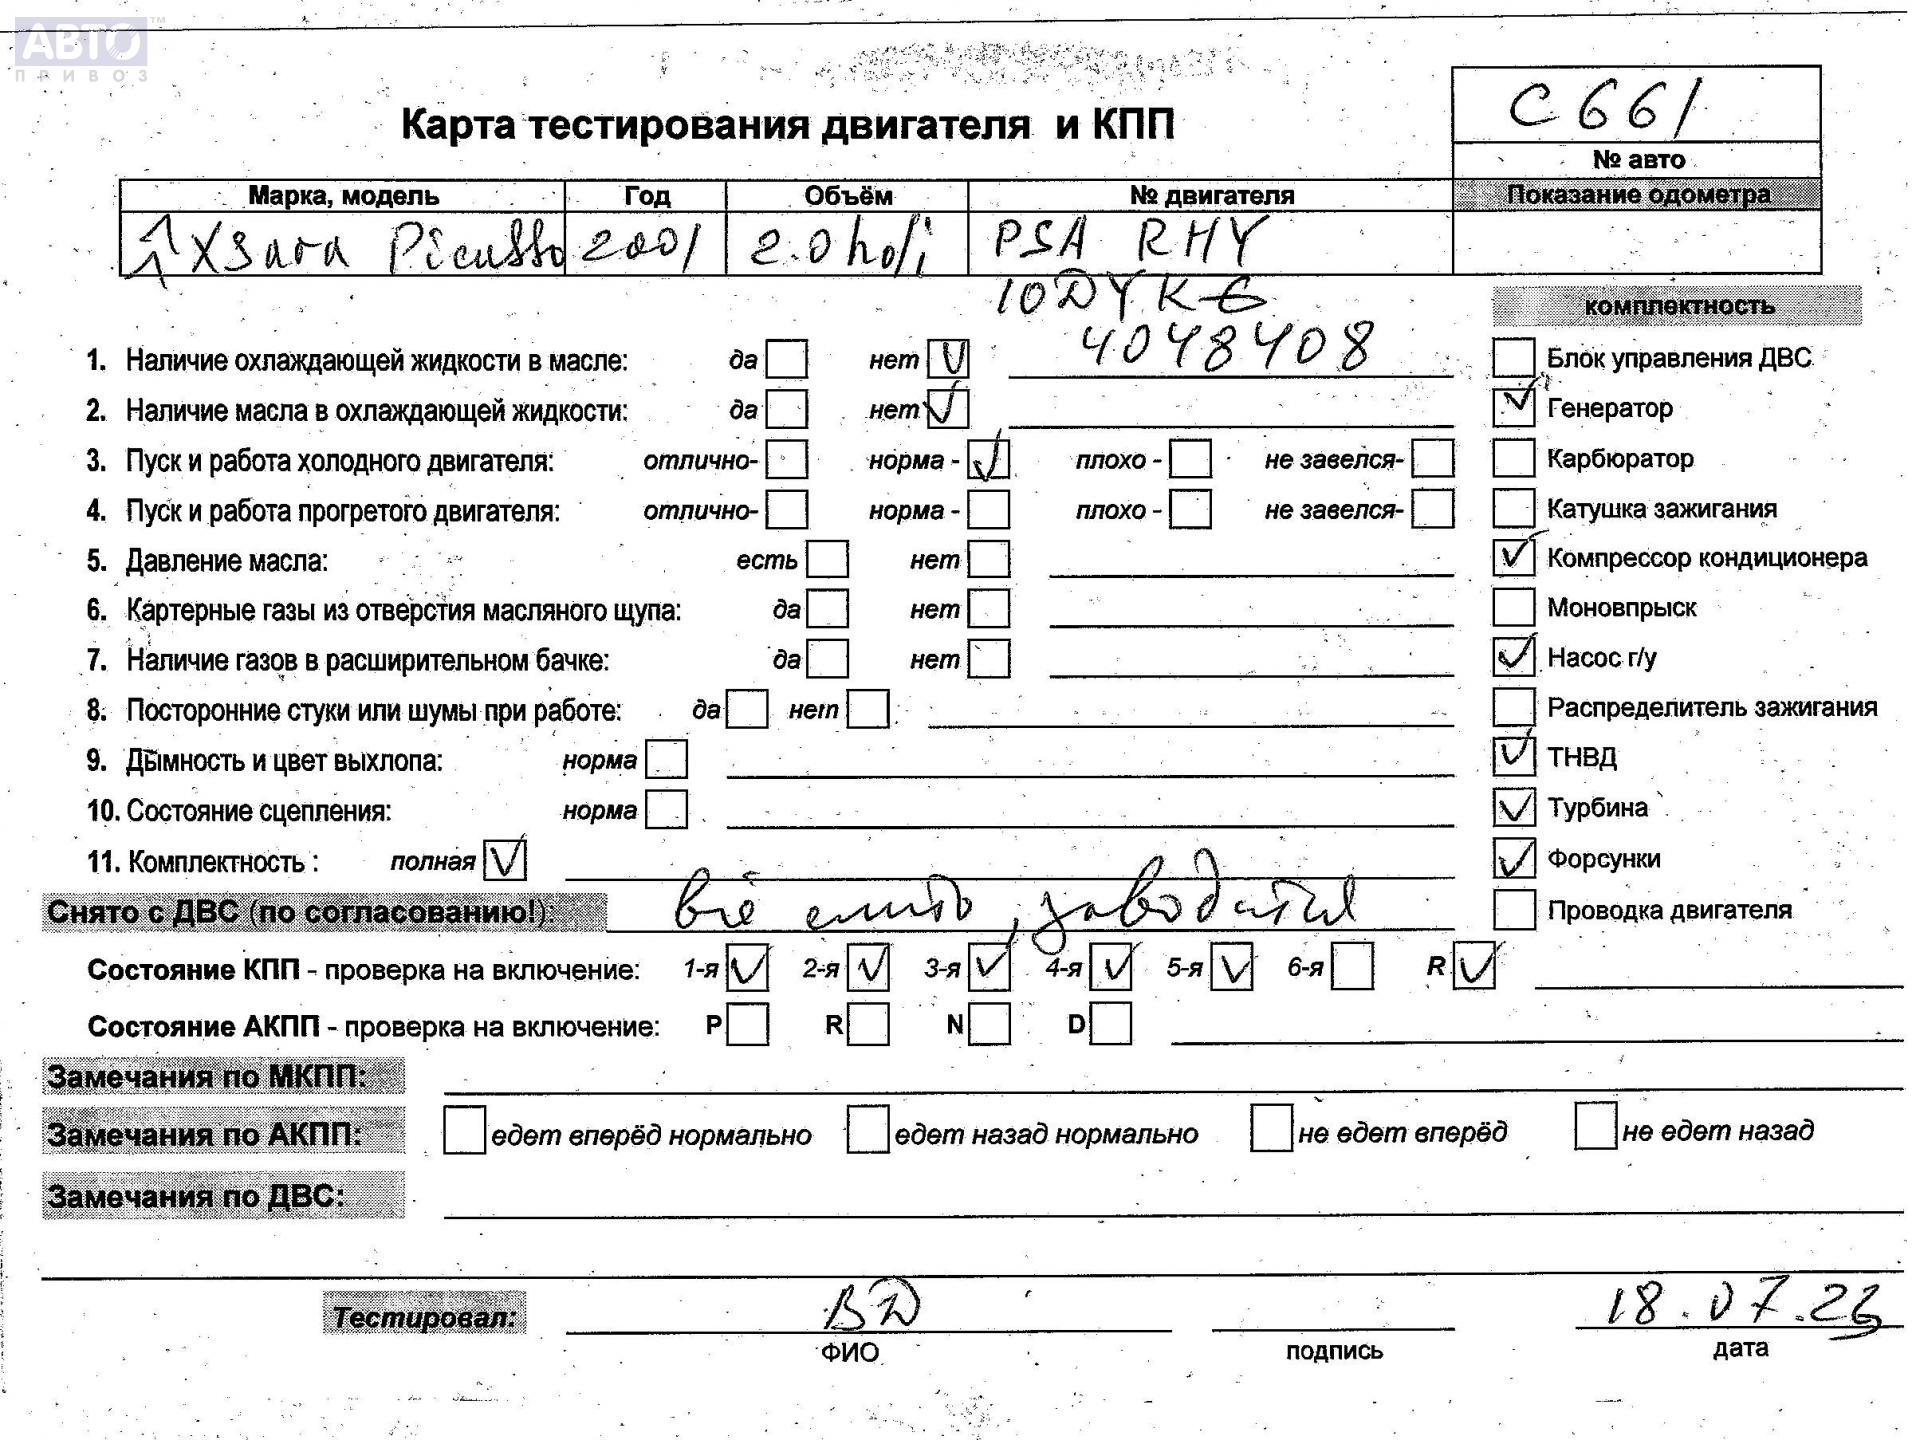 АВТО™
ПРИВОЗ
С661
Карта тестирования двигателя и КПП
№ авто
Марка, модель Год Объём № двигателя Показание одометра
Xsara Picasso 2001 2.0 hdi PSA RHY
10DYK6
4048408
комплектность
1. Наличие охлаждающей жидкости в масле: да нет V Блок управления ДВС
2. Наличие масла в охлаждающей жидкости: да нет V Генератор V
3. Пуск и работа холодного двигателя: отлично- норма - V плохо - не завелся- Карбюратор
4. Пуск и работа прогретого двигателя: отлично- норма - плохо - не завелся- Катушка зажигания
5. Давление масла: есть нет V Компрессор кондиционера
6. Картерные газы из отверстия масляного щупа: да нет Моновпрыск
7. Наличие газов в расширительном бачке: да нет V Насос г/у
8. Посторонние стуки или шумы при работе: да нет Распределитель зажигания
9. Дымность и цвет выхлопа: норма V ТНВД
10. Состояние сцепления: норма V Турбина
11. Комплектность : полная V V Форсунки
Снято с ДВС (по согласованию!): всё снято, заводится Проводка двигателя
Состояние КПП - проверка на включение: 1-я V 2-я V 3-я V 4-я V 5-я V 6-я R V
Состояние АКПП - проверка на включение: P R N D
Замечания по МКПП:
Замечания по АКПП: едет вперёд нормально едет назад нормально не едет вперёд не едет назад
Замечания по ДВС:
Тестировал: ВД 18.07.23
ФИО подпись дата